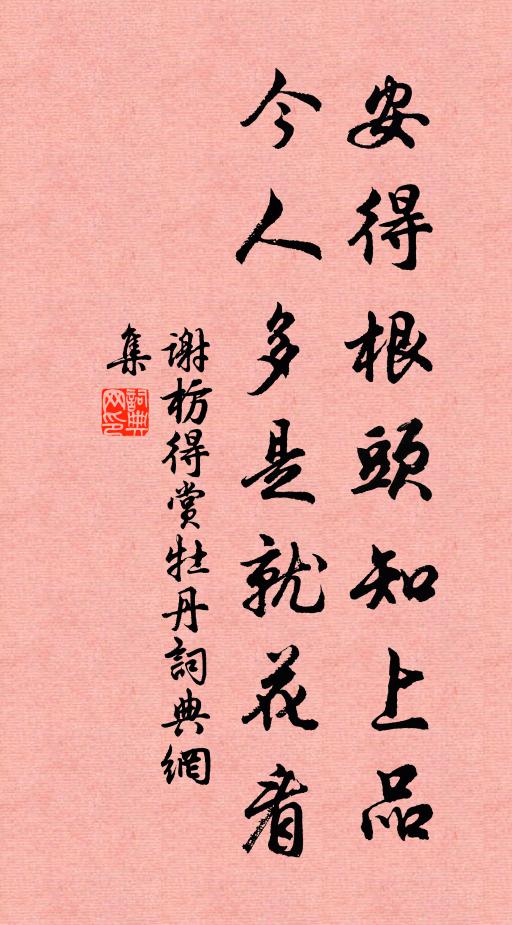 安得根頭知上品
今人多是就花看
謝枋得賞牡丹詞典網
集
詞典
网印